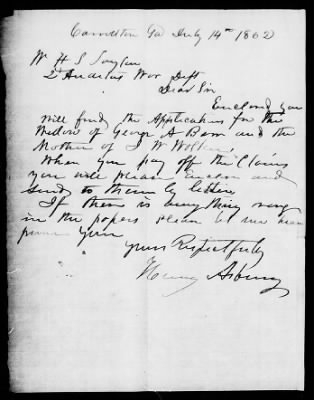 Carrollton Ga July 14th 1862
W. H. S. Taylor
2d Auditor War Dept
Dear Sir
Enclosed you
will find the Application for the
Widow of George A Barr and the
Mother of J W
When you pay off the Claims
you will please Enclose and
send to them by letter
If there is anything rong
in the papers please let me hear
from you
Yours Respectfully
Henry Asbury